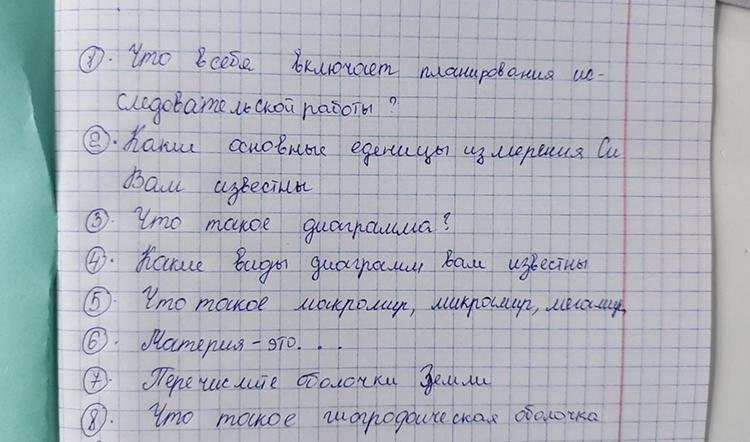 1. Что в себя включает планирования ис-
следовательской работы?
2. Какие основные еденицы измерения Си
Вам известны
3. Что такое диаграмма?
4. Какие виды диаграмм вам известны
5. Что такое макромир, микромир, мегамир
6. Материя - это...
7. Перечислите оболочки Земли
8. Что такое гиографическая оболочка